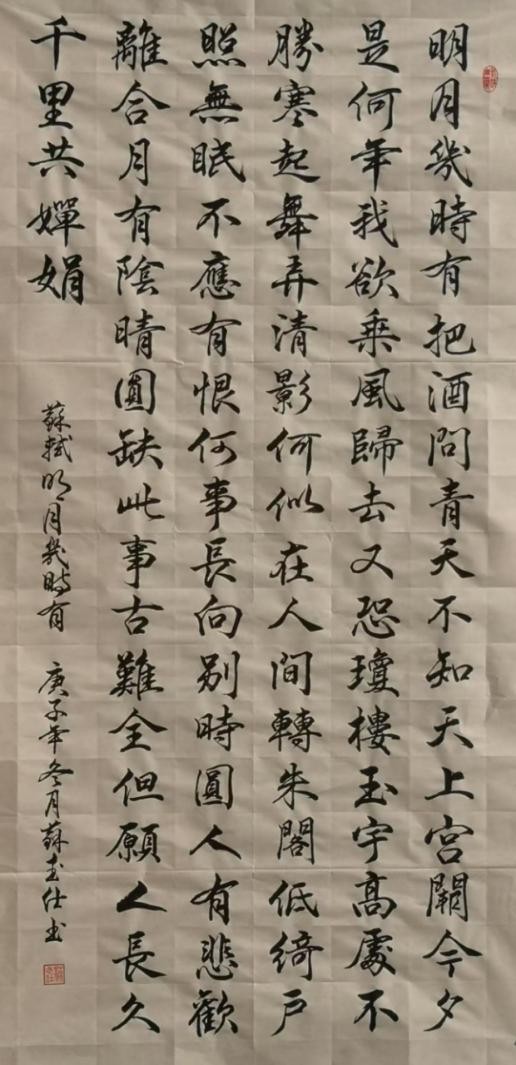 明月幾時有把酒問青天不知天上宮闕今夕
是何年我欲乘風歸去又恐瓊樓玉宇高處不
勝寒起舞弄清影何似在人間轉朱閣低綺戶
照無眠不應有恨何事長向別時圓人有悲歡
離合月有陰晴圓缺此事古難全但願人長久
千里共嬋娟
蘇軾明月幾時有 庚子年冬月蘇志仕书